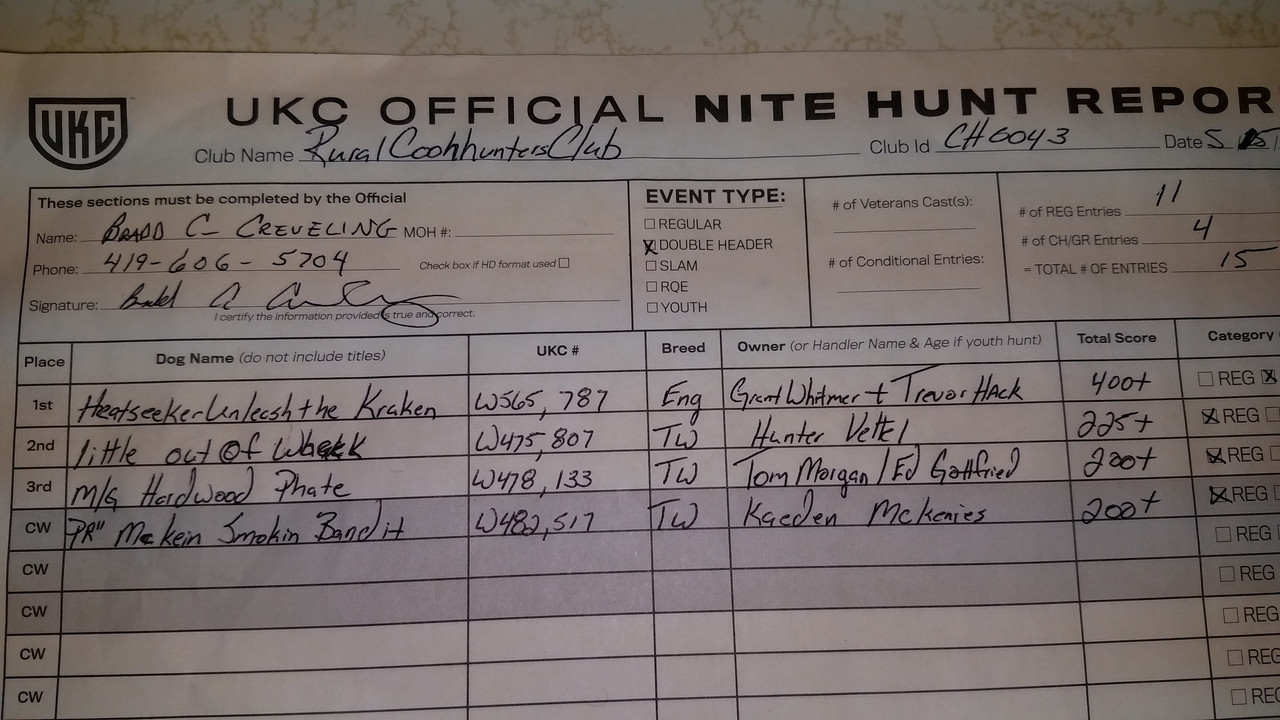 UKC
UKC OFFICIAL NITE HUNT REPOR
Club Name Rural CoohhuntersClub Club Id CH6043 Date 5
These sections must be completed by the Official
Name: BRADD C CREVELING MOH #:
Phone: 419-606-5704 Check box if HD format used ☐
Signature:
I certify the information provided is true and correct.
EVENT TYPE:
☐ REGULAR
☒ DOUBLE HEADER
☐ SLAM
☐ RQE
☐ YOUTH
# of Veterans Cast(s):
# of Conditional Entries:
# of REG Entries 11
# of CH/GR Entries 4
= TOTAL # OF ENTRIES 15
Place Dog Name (do not include titles) UKC # Breed Owner (or Handler Name & Age if youth hunt) Total Score Category
1st Heatseeker Unleash the Kraken W565,787 Eng Grant Whitmer + Trevor Hack 400+ ☐ REG ☒
2nd little out of Whack W475,807 TW Hunter Vettel 225+ ☒ REG ☐
3rd M/G Hardwood Phate W478,133 TW Tom Morgan / Ed Gottfried 200+ ☒ REG ☐
CW "PR" Makein Smokin Bandit W482,517 TW Kaeden McKenies 200+ ☒ REG ☐
CW ☐ REG
CW ☐ REG
CW ☐ REG
CW ☐ REG
☐ REG